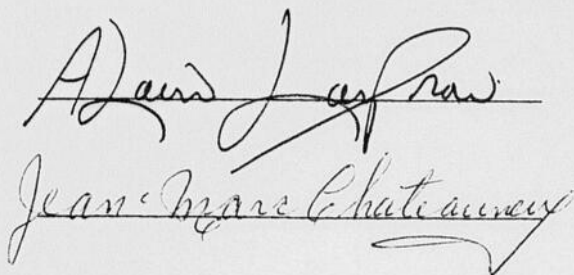 Alain
Jean-Marc Chateauneuf